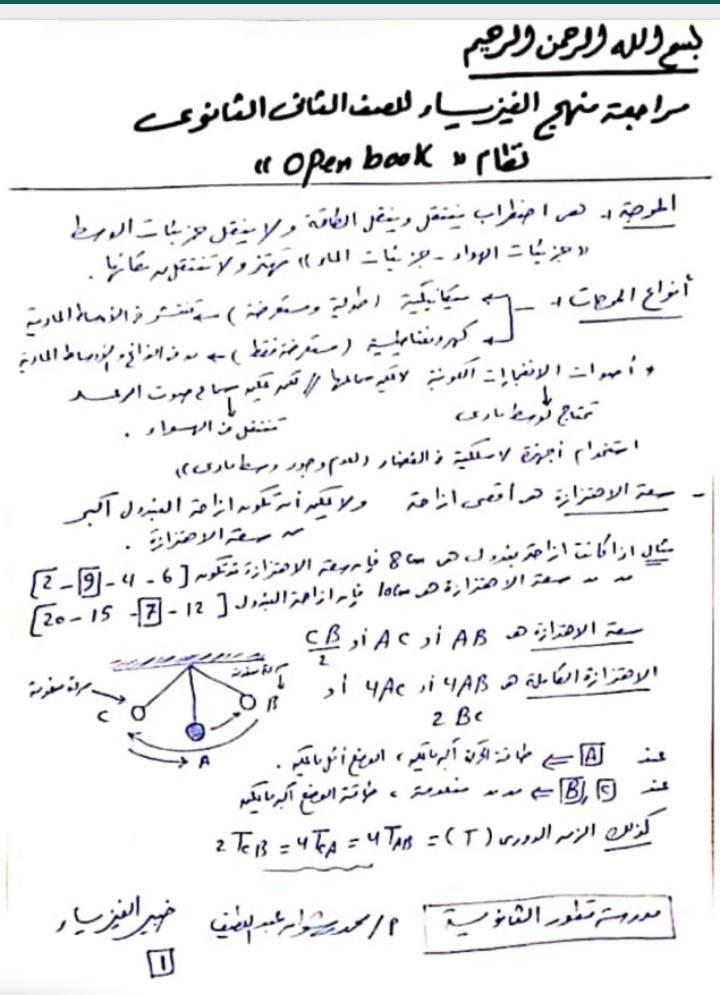 بسم الله الرحمن الرحيم
مراجعة منهج الفيزياء للصف الثانى الثانوى
نظام « open book »
الموجة :- هى اضطراب ينتقل وينقل الطاقة ولا ينقل جزيئات الوسط
«جزيئات الهواء - جزيئات الماء» تهتز ولا تنتقل من مكانها .
أنواع الموجات :-
ميكانيكية (طولية ومستعرضة) ← تنتشر فى الأوساط المادية
كهرومغناطيسية (مستعرضة فقط) ← فى الفراغ والأوساط المادية
* أصوات الانفجارات الكونية لا يمكن سماعها // لكن يمكن سماع صوت الرعد
تحتاج لوسط مادى
تنتقل فى الهواء .
استخدام أجهزة لاسلكية فى الفضاء (لعدم وجود وسط مادى)
- سعة الاهتزازة هى أقصى ازاحة ولا يمكن أن تكون ازاحة البندول أكبر
من سعة الاهتزازة .
مثال اذا كانت ازاحة بندول هى 8 cm فإن سعة الاهتزازة قد تكون [2 - 9 - 4 - 6]
" " سعة الاهتزازة هى 10 cm فإن ازاحة البندول [20 - 15 - 7 - 12]
سعة الاهتزازة هى AB أو AC أو CB/2
الاهتزازة الكاملة هى 4AB أو 4AC أو
2 BC
سرعة منعدمة
سرعة منعدمة
C
B
A
عند A ⇐ طاقة الحركة أكبر ما يمكن ، الوضع أقل ما يمكن .
عند B , C ⇐ " " منعدمة ، طاقة الوضع أكبر ما يمكن
كذلك الزمن الدورى (T) = 4TAB = 4TCA = 2TCB
مدرسة قطور الثانوية
أ / محمد رضوان عبد اللطيف
خبير الفيزياء
1